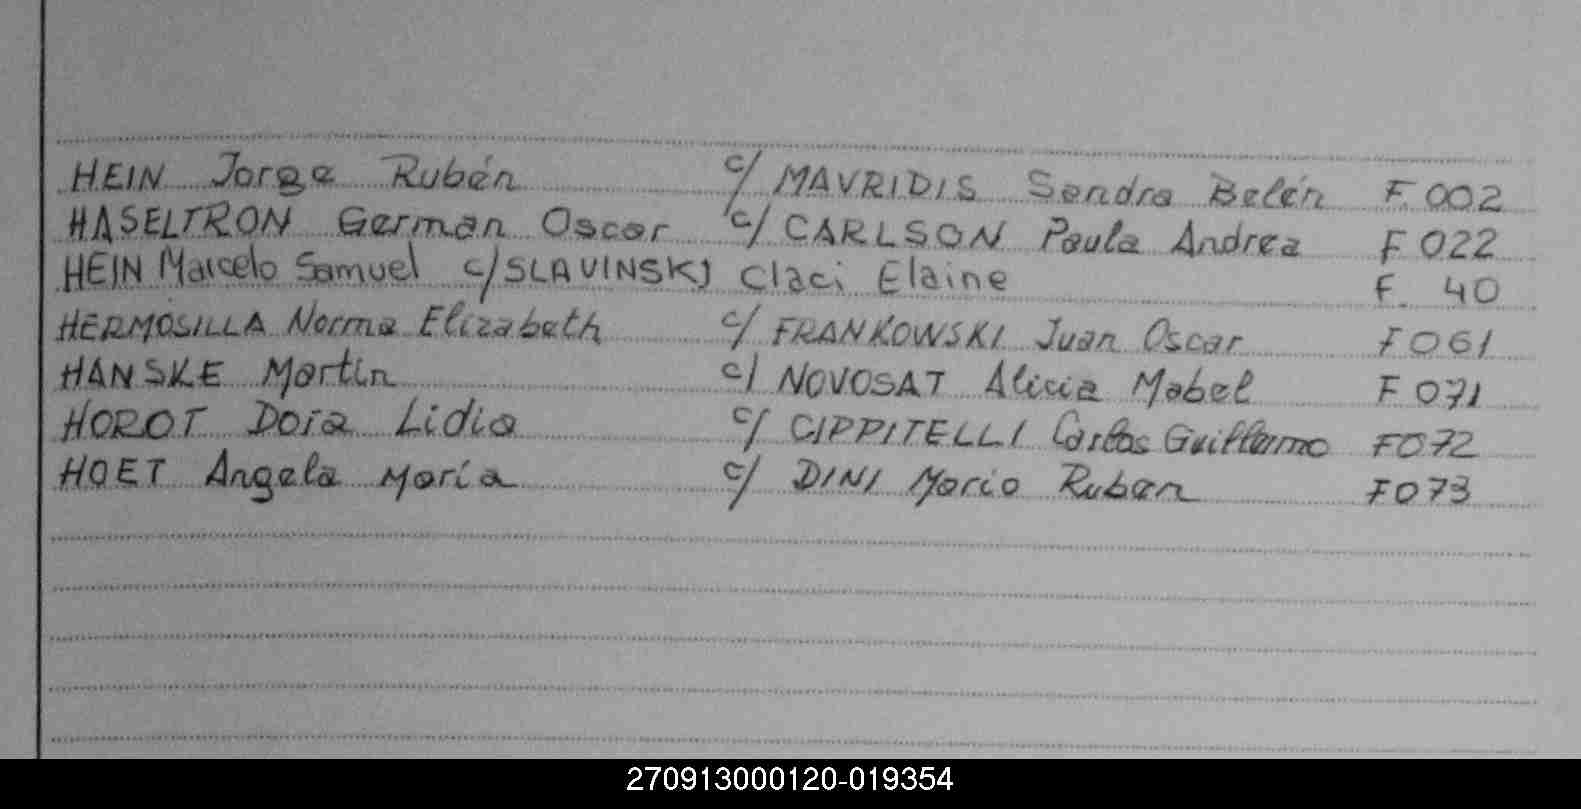 HEIN Jorge Rubén c/ MAVRIDIS Sandra Belén F. 002
HASELTRON German Oscar c/ CARLSON Paula Andrea F 022
HEIN Marcelo Samuel c/ SLAVINSKJ Claci Elaine F. 40
HERMOSILLA Norma Elizabeth c/ FRANKOWSKI Juan Oscar F 061
HANSKE Martin c/ NOVOSAT Alicia Mabel F 071
HOROT Dora Lidia c/ CIPPITELLI Carlos Guillermo F072
HOET Angela María c/ DINI Mario Ruben F073
270913000120-019354